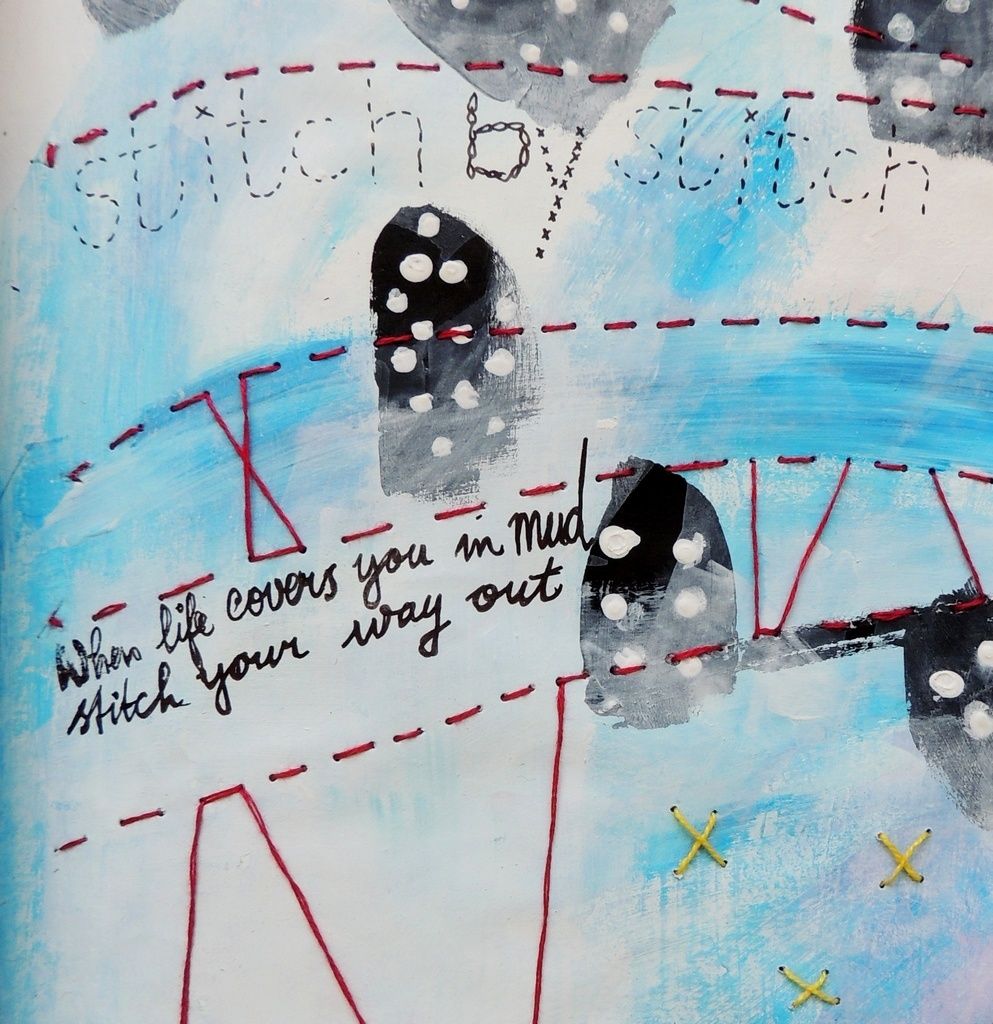 stitch by stitch
When life covers you in mud
stitch your way out